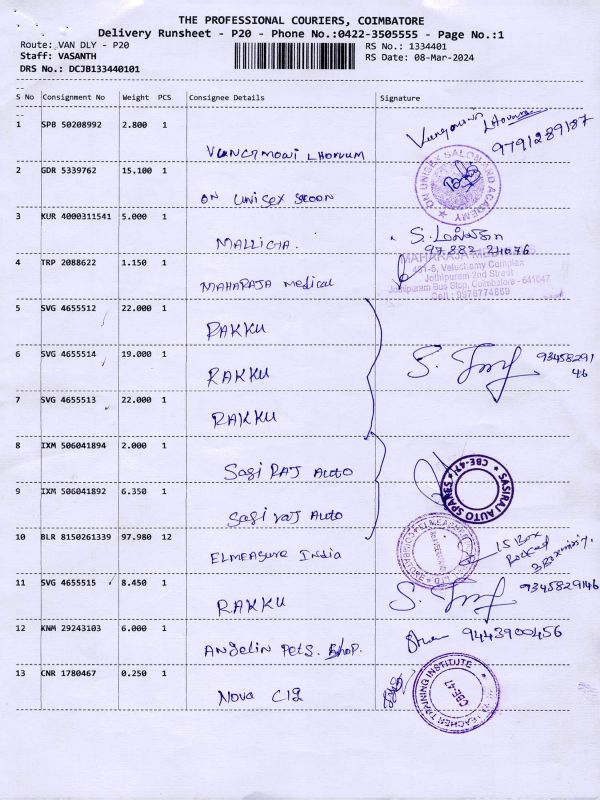 THE PROFESSIONAL COURIERS, COIMBATORE
Delivery Runsheet - P20 - Phone No.:0422-3505555 - Page No.:1
Route: VAN DLY - P20
RS No.: 1334401
Staff: VASANTH
RS Date: 08-Mar-2024
DRS No.: DCJB133440101
S No Consignment No Weight PCS Consignee Details Signature
1 SPB 50208992 2.800 1
9791289187
2 GDR 5339762 15.100 1 ON UNISEX
ON UNISEX SALON AND ACADEMY
3 KUR 4000311541 5.000 1 MALLIGA.
97882 24076
4 TRP 2088622 1.150 1 MAHARAJA medical
MAHARAJA
491-6, Veluchamy Complex
Jothipuram 2nd Street
Jothipuram Bus Stop, Coimbatore - 641047
Cell : 9976774869
5 SVG 4655512 22.000 1 RAKKU
6 SVG 4655514 19.000 1 RAKKU
93458291
46
7 SVG 4655513 22.000 1 RAKKU
8 IXM 506041894 2.000 1 Sasi RAJ Auto
SASIRAJ AUTO SPARES
CBE-47
9 IXM 506041892 6.350 1 Sasi raJ Auto
10 BLR 8150261339 97.980 12 ELMEASURE India
15 Box
11 SVG 4655515 8.450 1 RAKKU
9345829146
12 KNM 29243103 6.000 1 Angelin Pets. Shop.
9443900456
13 CNR 1780467 0.250 1 Nova
TEACHER TRAINING INSTITUTE
CBE-47